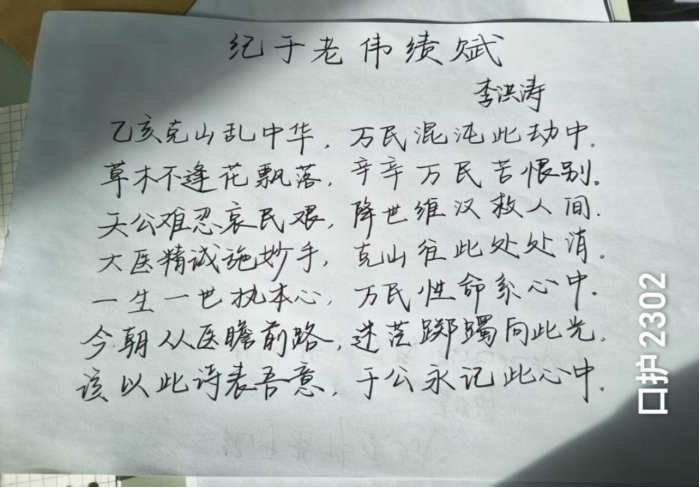 纪于老伟绩赋
李洪涛
乙亥克山乱中华，万民混沌此劫中。
草木不逢花飘落，辛辛万民苦恨别。
天公难忍哀民艰，降世维汉救人间。
大医精诚施妙手，克山往此处处消。
一生一世执本心，万民性命系心中。
今朝从医瞻前路，迷茫踯躅向此光。
该以此诗表吾意，于公永记此心中。
口护2302